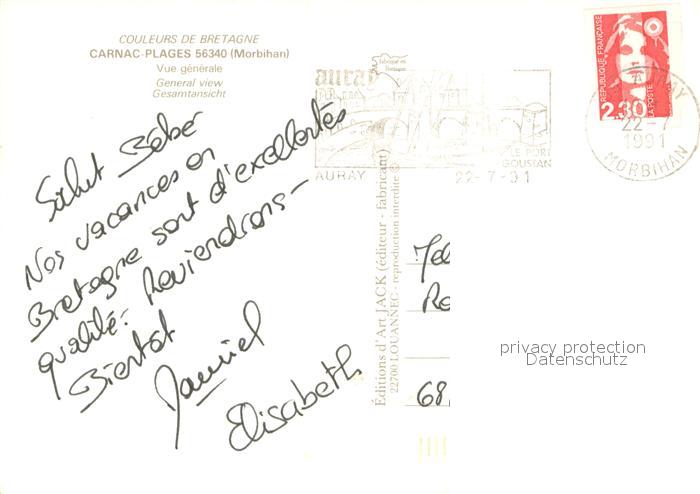 COULEURS DE BRETAGNE
CARNAC-PLAGES 56340 (Morbihan)
Vue générale
General view
Gesamtansicht
Salut Bébé
Nos vacances en
Bretagne sont d'excellentes
qualité. Reviendrons-
Bientôt
Elisabeth
auray
Fabriqué en
Bretagne
LE PORT
GOUSTAN
AURAY 22-7-91
REPUBLIQUE FRANÇAISE
2,30
LA POSTE
22-7
1991
MORBIHAN
Éditions d'Art JACK (éditeur - fabricant)
22700 LOUANNEC - reproduction interdite ©
68
privacy protection
Datenschutz